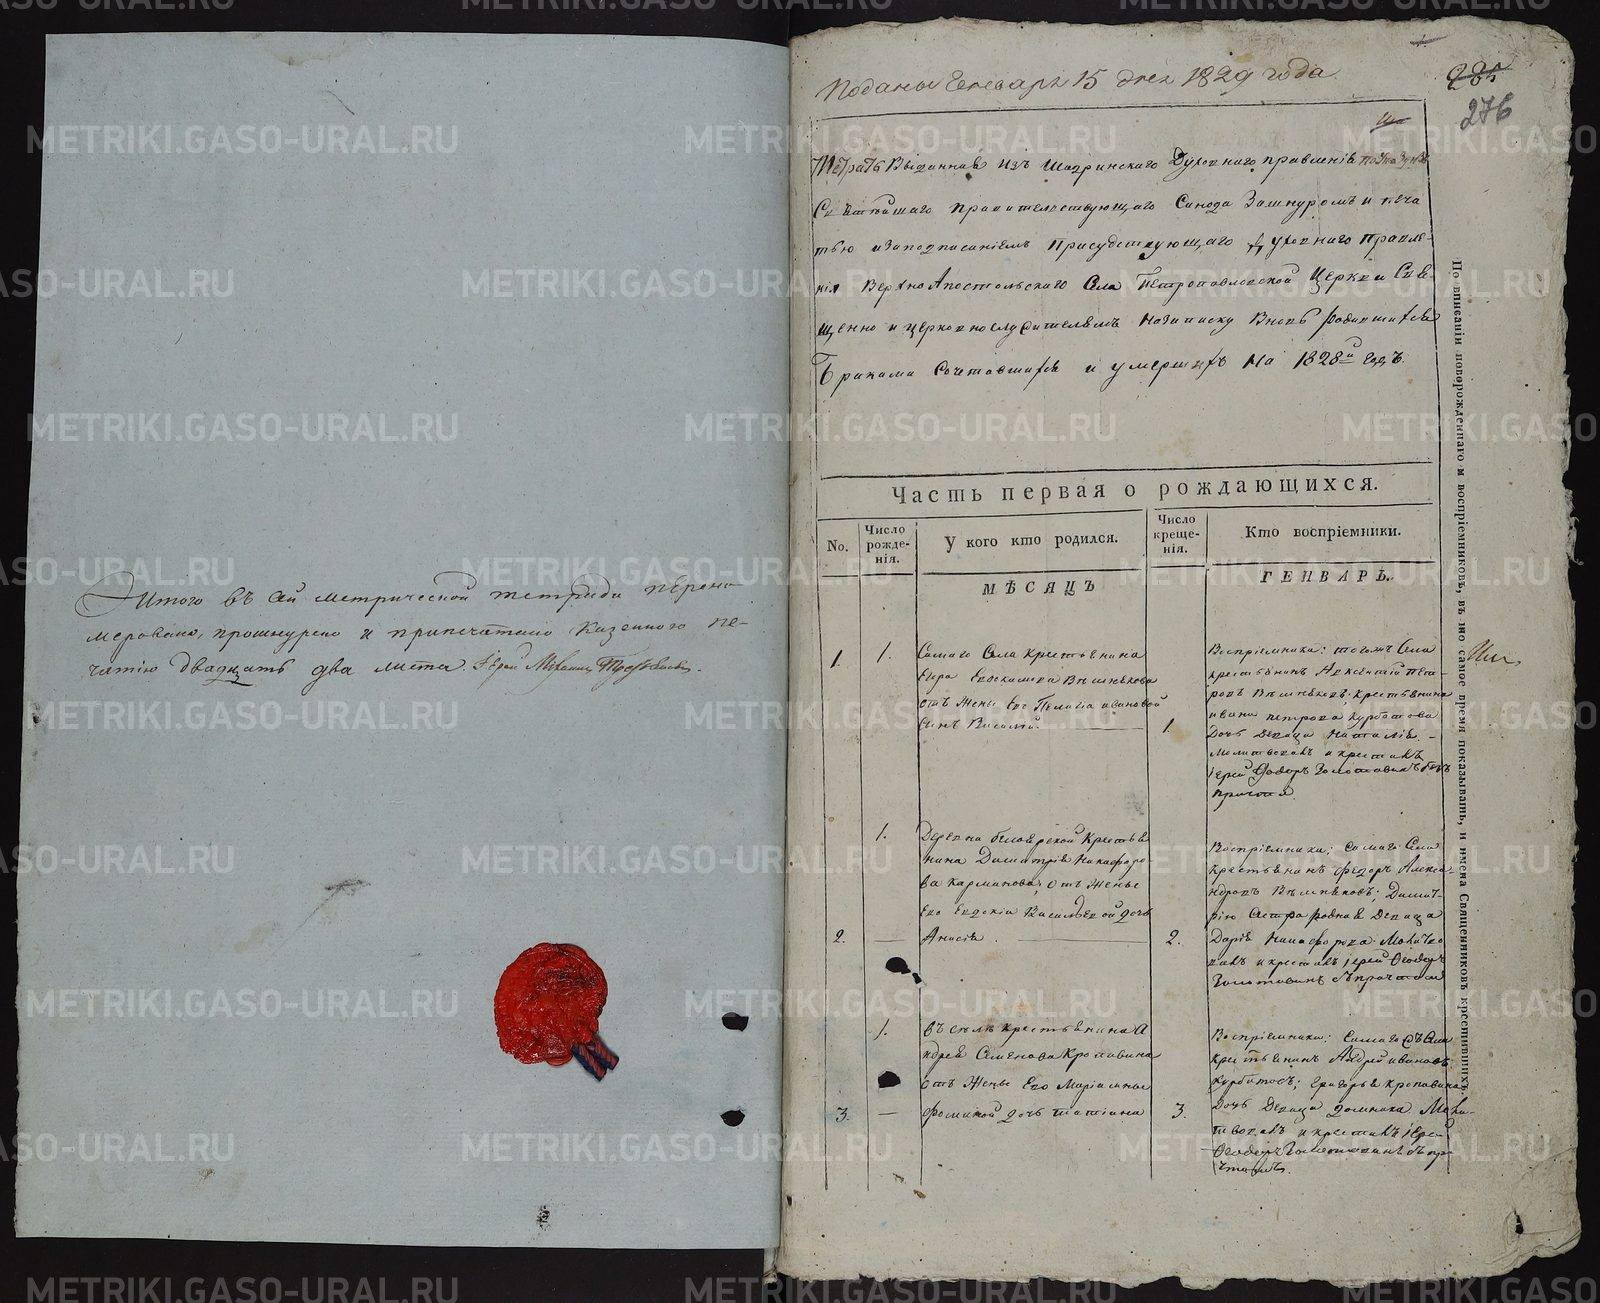 Итого въ сей метрической тетради перену
мерована, прошнурено и припечатано казенною пе-
чатию двадцать два листа. Іерей Михаилъ
Поданы Генваря 15 дня 1829 года
285
276
Тетрать Выданная изъ Шадринскаго Духовнаго правленія по указу
Святѣйшаго правительствующаго Синода за шнуромъ и печа
тью и заподписаніемъ Присудствующаго Духовнаго Правле-
нія Верхно Апостольскаго Села Петропавловской Церкви Свя-
щенно и церковнослужителямъ на записку Вновь родившихся
Браками Сочетавшихся и умершихъ на 1828й годъ.
Часть первая о рождающихся.
No.
Число рожде-нія.
У кого кто родился.
Число креще-нія.
Кто воспріемники.
МѢСЯЦЪ
ГЕНВАРЬ.
1.
1.
Самаго Села крестьянина
отъ жены Его Пелагіи Ивановой
сынъ Василій.
1.
Воспріемники: тогожъ Села
крестьянинъ Арксентій Пет-
ровъ крестьянина
Ивана Петрова Курбатова
Дочь Девица Наталія
Молитвовалъ и крестилъ
Іерей Ѳеодоръ безъ
причта.
1.
Деревни Белоярской Крестья
нина Димитрія Никифоро
ва Карманова, отъ жены
Его Евдокіи Васильевой дочь
2.
Анисія.
2.
Воспріемники: Самаго Села
крестьянинъ Федоръ Алекса-
ндровъ Димит-
рію Сестра родная Девица
Дарія Никифорова. Молитво
валъ и крестилъ Іерей Ѳеодоръ
съ причтомъ
1.
въ селѣ крестьянина А
ндрея Семенова Кропанина
отъ жены Его Маріамны
3.
Фоминой дочь Татіана
3.
Воспріемники: Самаго Села
крестьянинъ Андрей Ивановъ
Курбатовъ; Григорья Кропанина
Дочь Девица Домника Моли-
твовалъ и крестилъ Іерей
Ѳеодоръ съ при-
чтомъ.
По вписаніи новорожденнаго и воспріемниковъ, въ то самое время показывать, и имена Священниковъ крестившихъ
METRIKI.GASO-URAL.RU